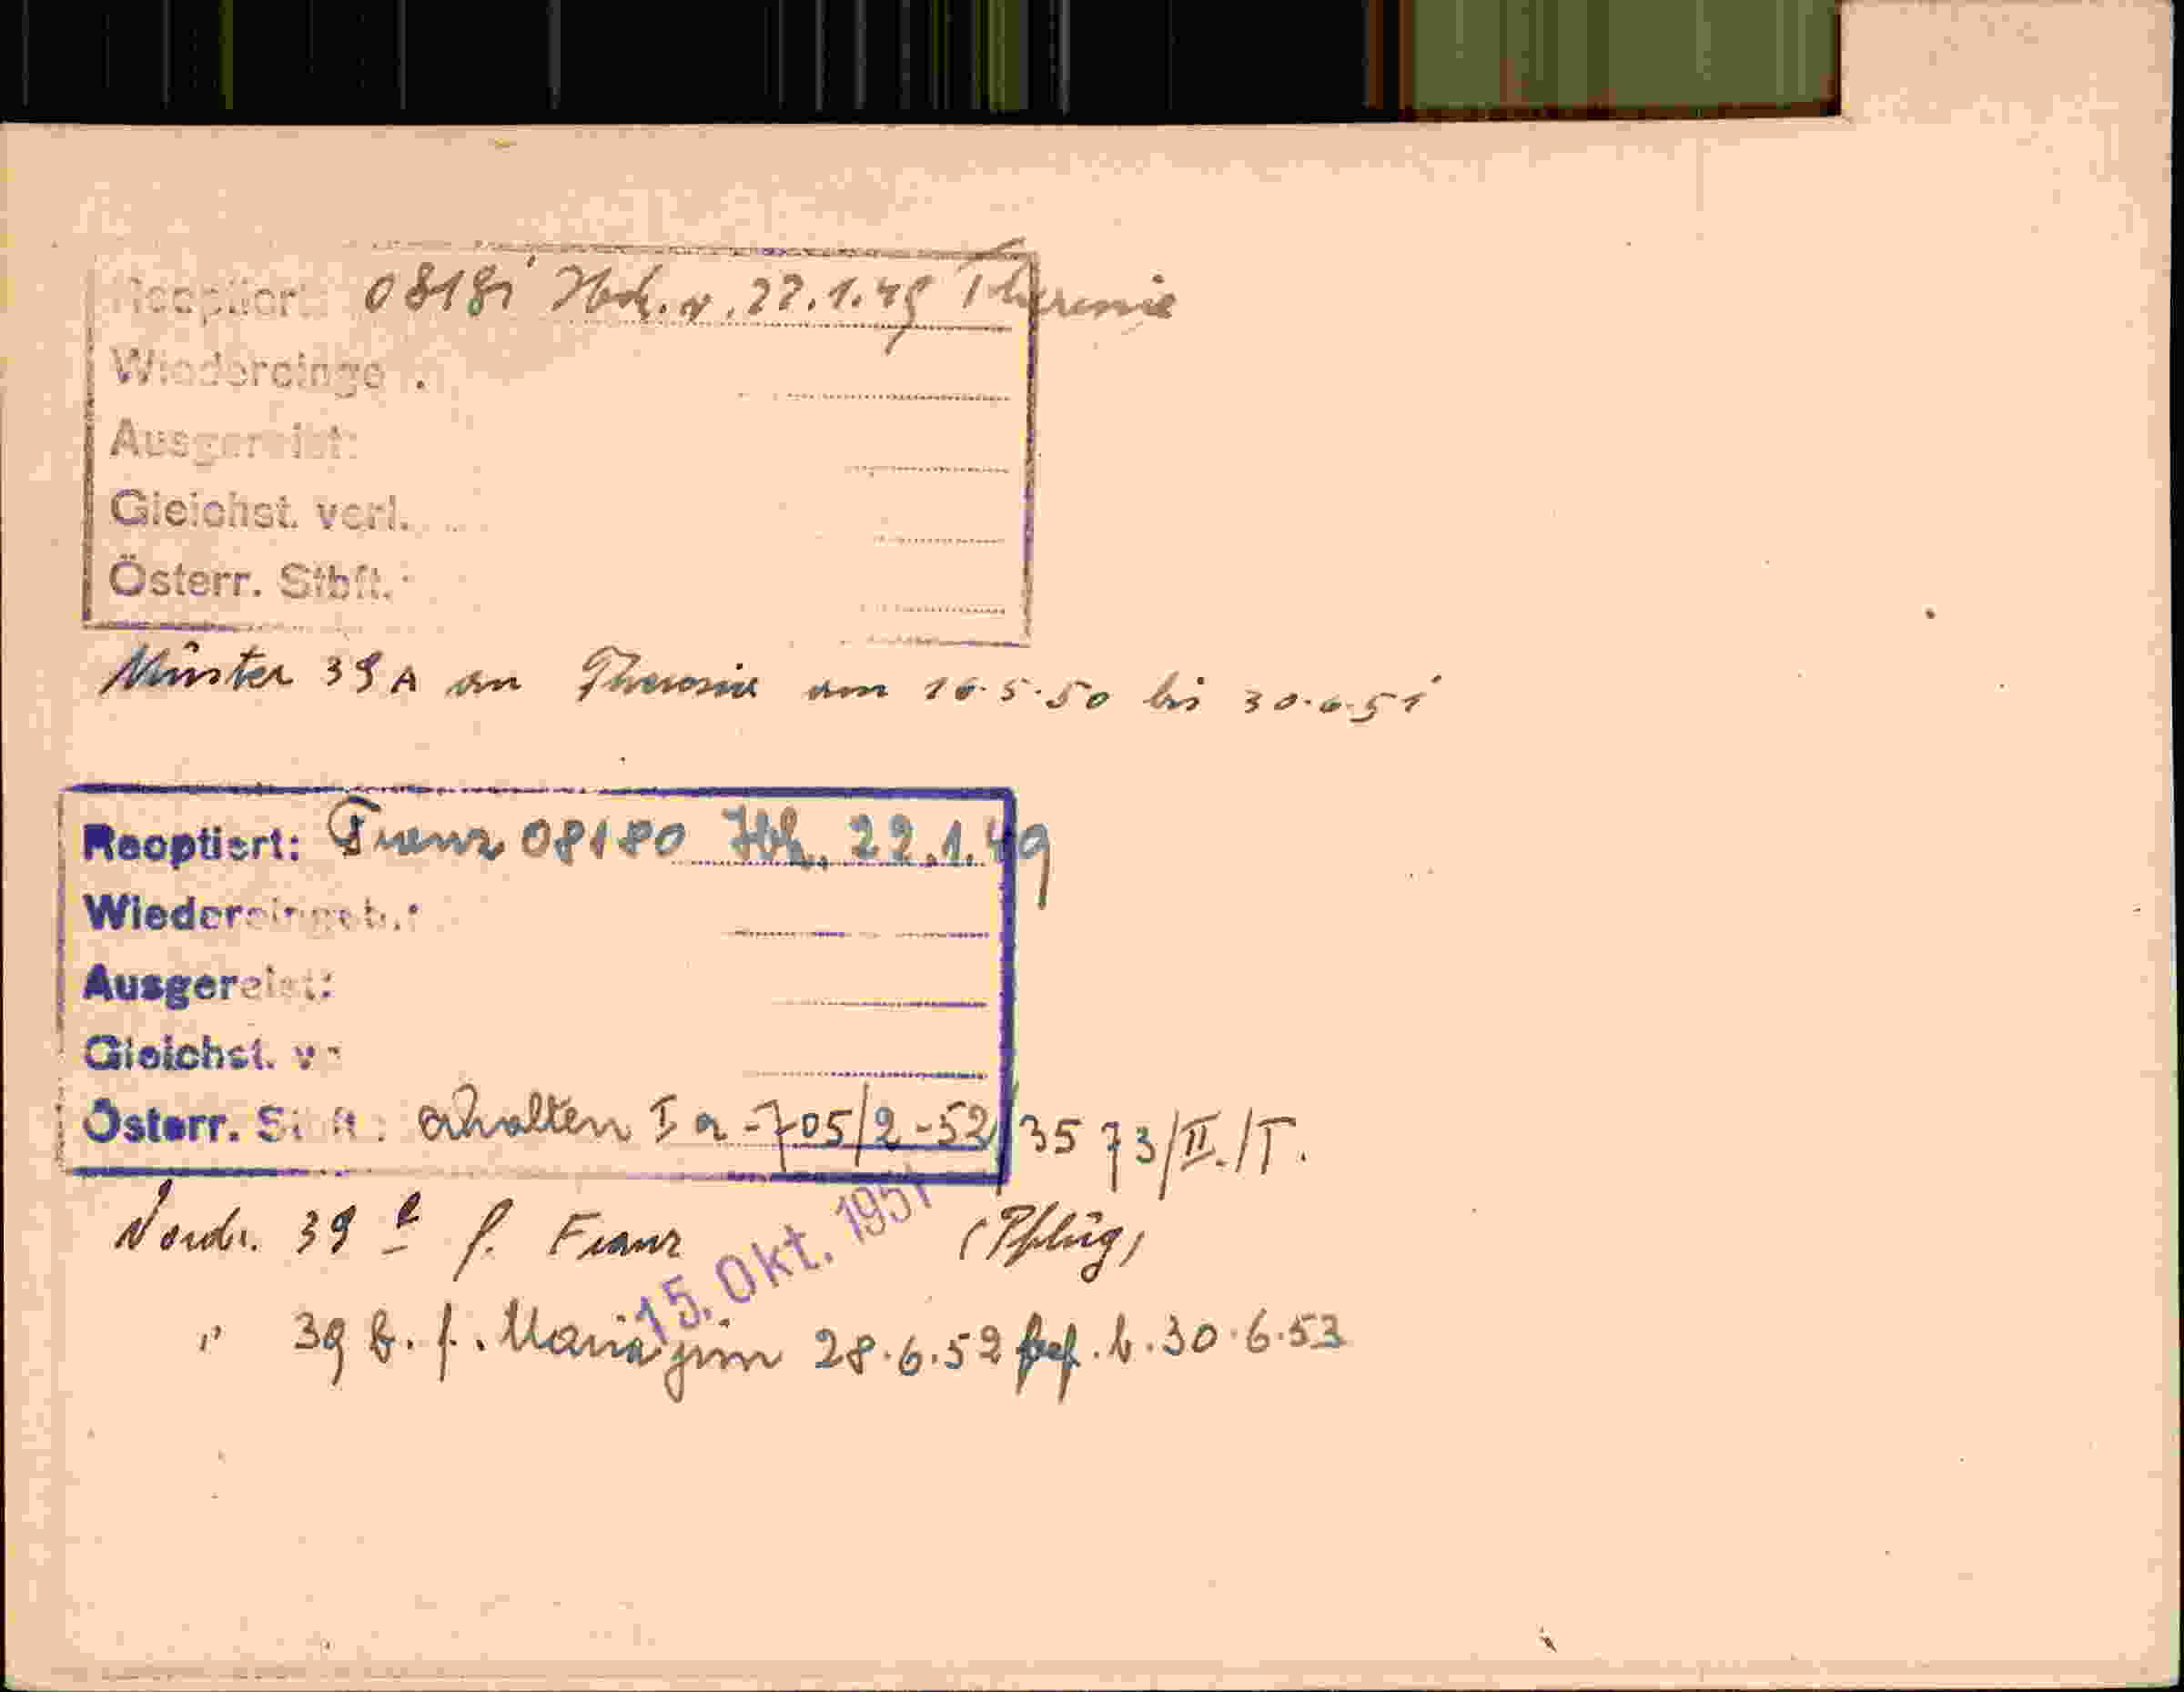 Reoptiert: 08181 v. 22.1.49 Theresia
Wiedereingeb.:
Ausgereist:
Gleichst. verl.
Österr. Stbft.:
Muster 39 A an Theresia am 16.5.50 bis 30.6.51
Reoptiert: Franz 08180 22.1.49
Wiedereingeb.:
Ausgereist:
Gleichst. v
Österr. Stbft.: erhalten I a-705/2-52/3573/II./T.
39 f. Franz (Pflug)
15. Okt. 1951
" 39 b. f. Maria 28.6.52 b. 30.6.53